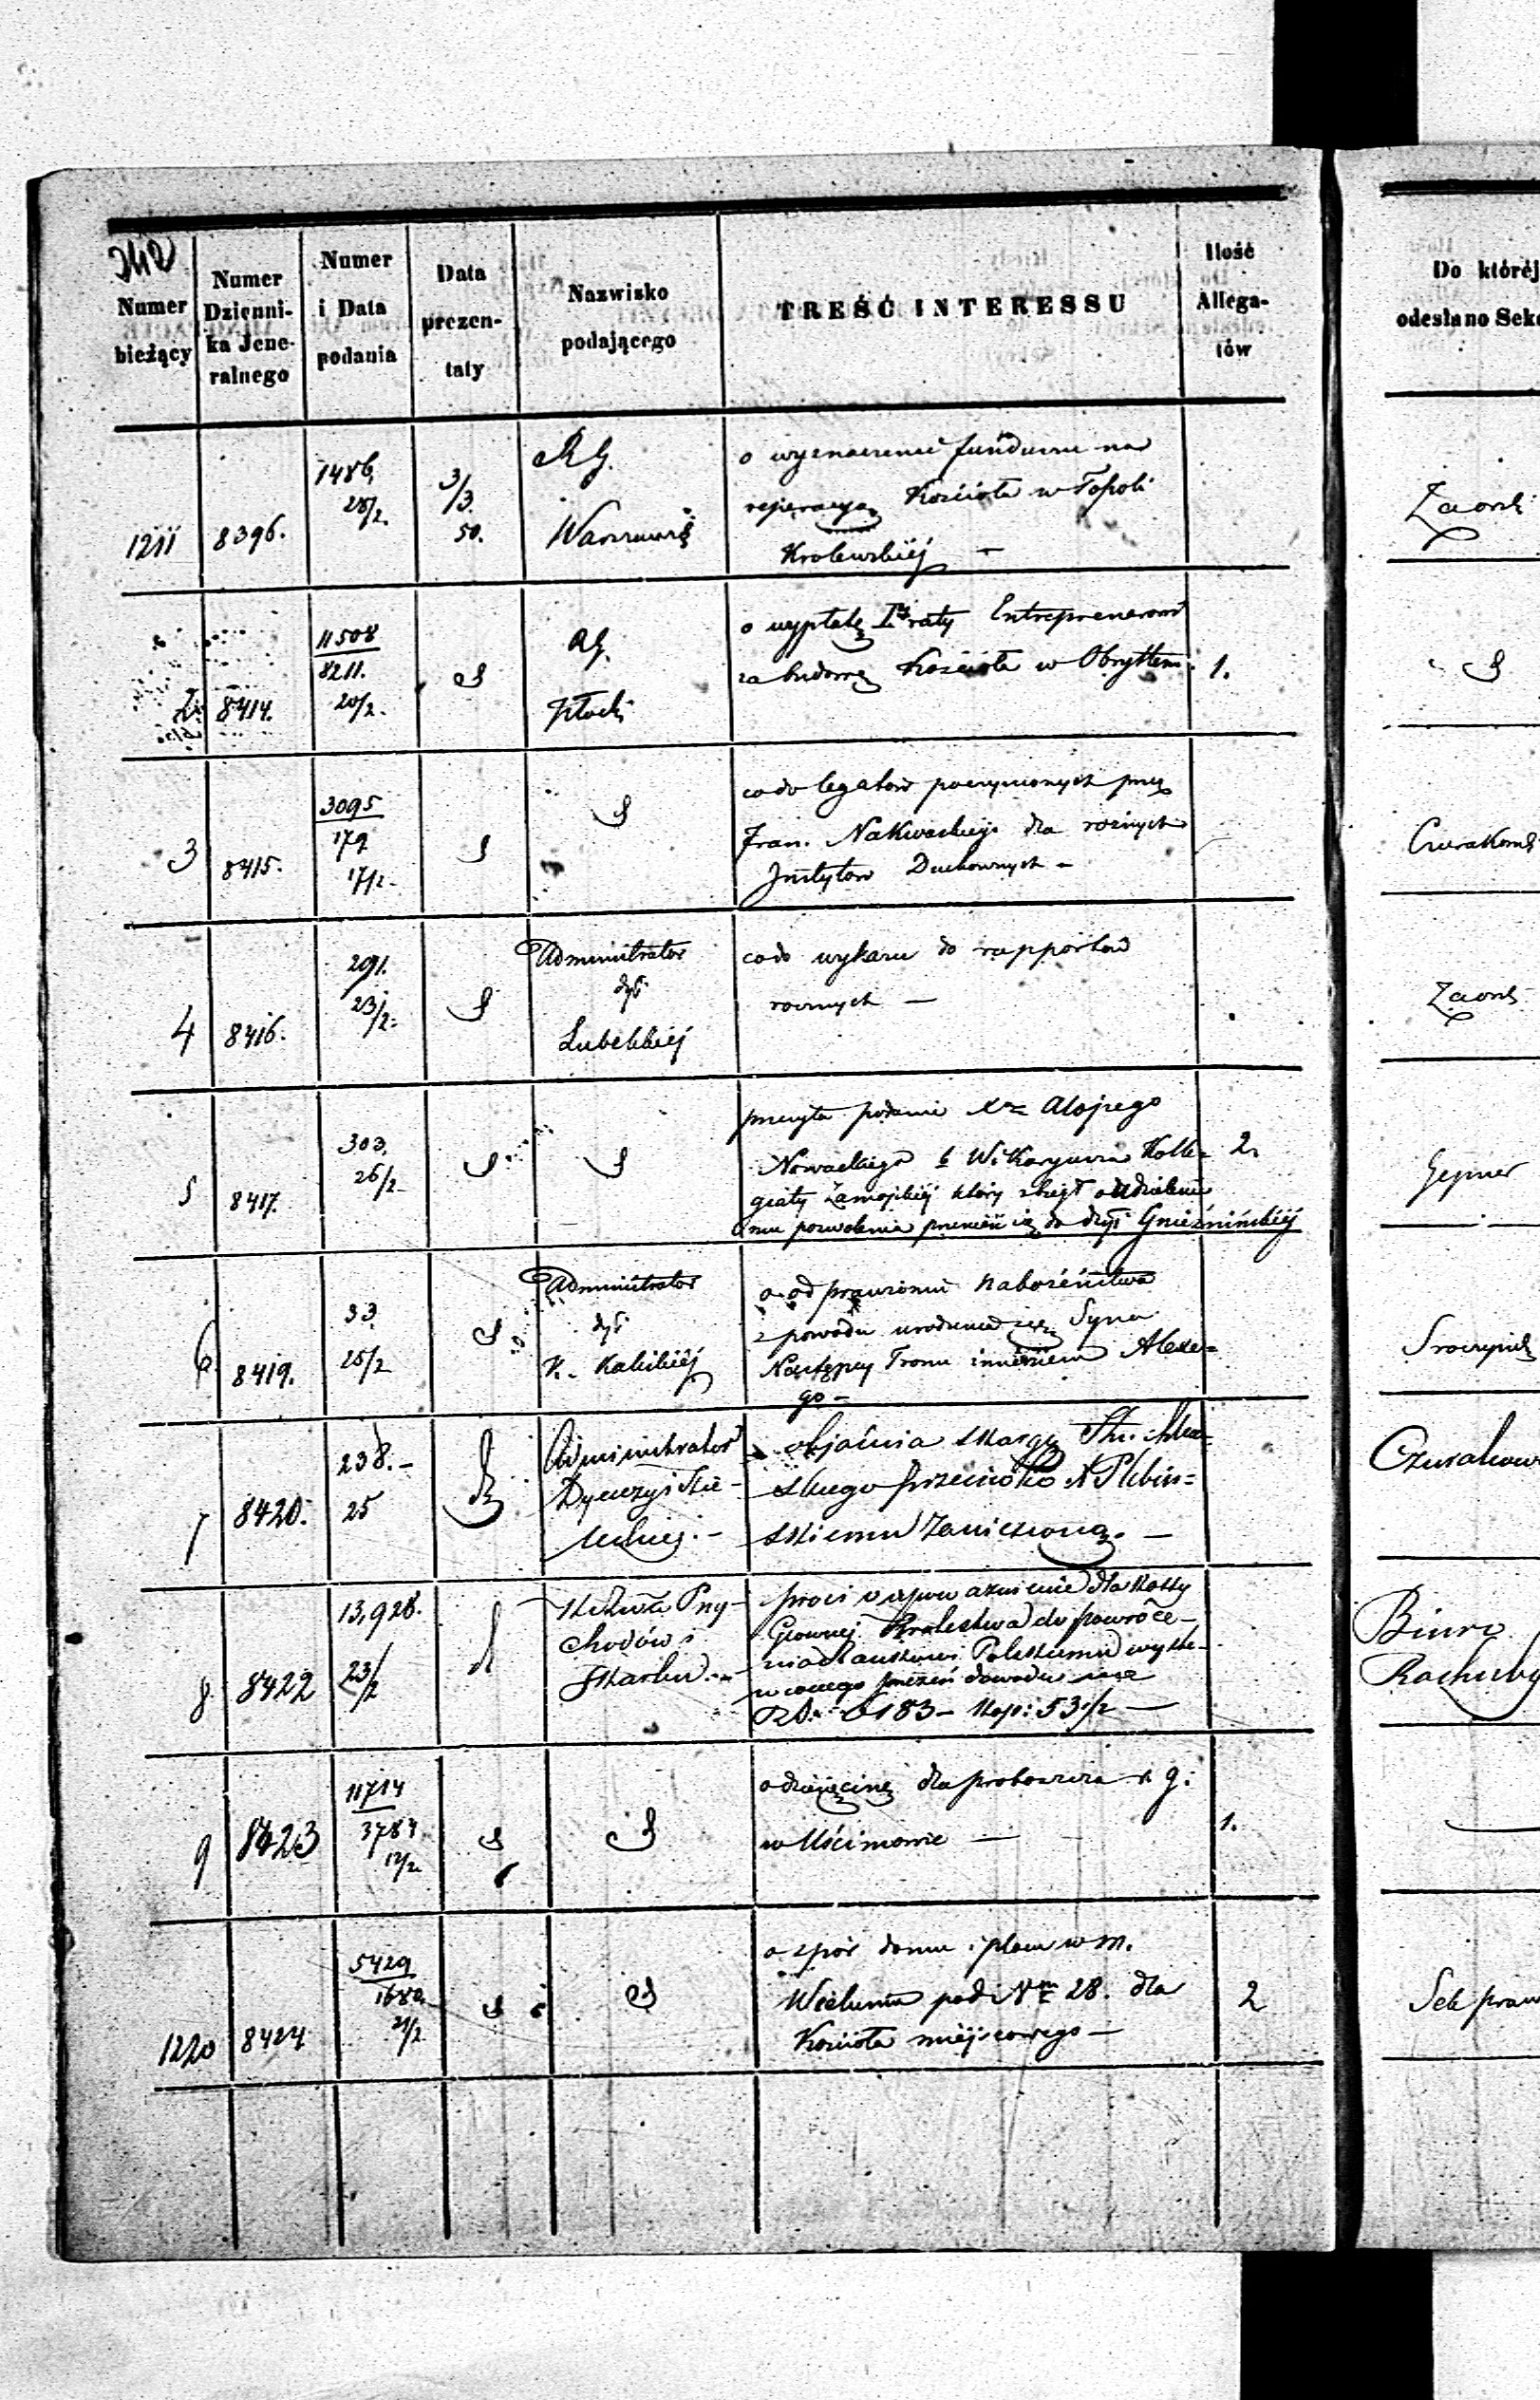 240
Numer bieżący
Numer Dzienni-ka Jene-ralnego
Numer i Data podania
Data prezen-taty
Nazwisko podającego
TREŚĆ INTERESSU
Ilość Allega-tów
Do któréj
odesłano Sek
1211 8396. 1486. 28/2. 3/3. 50. RG. Warszawski
o wyznaczenie funduszu na
reperacyą Kościoła w Topoli
Krolewskiéj —
Zaorsk
2. 8414. 11508 8211. 20/2. RG. Płocki
o wypłatę I raty Entreprenerowi
za budowę Kościoła w Obrytem. 1.
3 8415. 3095 179 17/2.
co do legatow poczynionych przez
Fran. Nakwaskiego dla rożnych
Jnstytow Duchownych —
Czurakowsk
4 8416. 291. 23/2. Administrator dyi Lubelskiéj
co do wykazu do rapportow
rocznych —
Zaorsk
5 8417. 303. 26/2
przesyła podanie Xa Alojzego
Nowackiego b Wikaryusza Kolle-
giaty Zamojskiéj który
mu pozwolenia przenieść się do dyi Gnieźnińskiéj
2.
Gejner
6. 8419. 33. 25/2 Administrator dyi K. Kaliskiéj
o odprawieniu nabożeństwa
z powodu urodzenia się Syna
Następcy Tronu imieniem Alexe-
go —
7 8420. 238. — 25 Administrator Dyecezyi Kie-leckiej. —
objaśnia skargę
skiego przeciwko X Plebin-
skiemu zaniesioną. —
Czurakow
8. 8422 13,928. 23/2 Przy-chodów i Skarbu. —
prosi o upoważnienie dla Kassy
Głownej Krolestwa do powróce-
183 — Kop: 53 1/2 —
Biuro
Rachuby
9 8423 11714 3784 12/2
o dziesięcinę dla proboszcza r g:
w Uścimowie — 1.
1220 8424 5429 1680 21/2
o spór domu i placu w m.
Wieluniu pod Nm 28. dla
Kościoła miéjscowego — 2
Sek praw